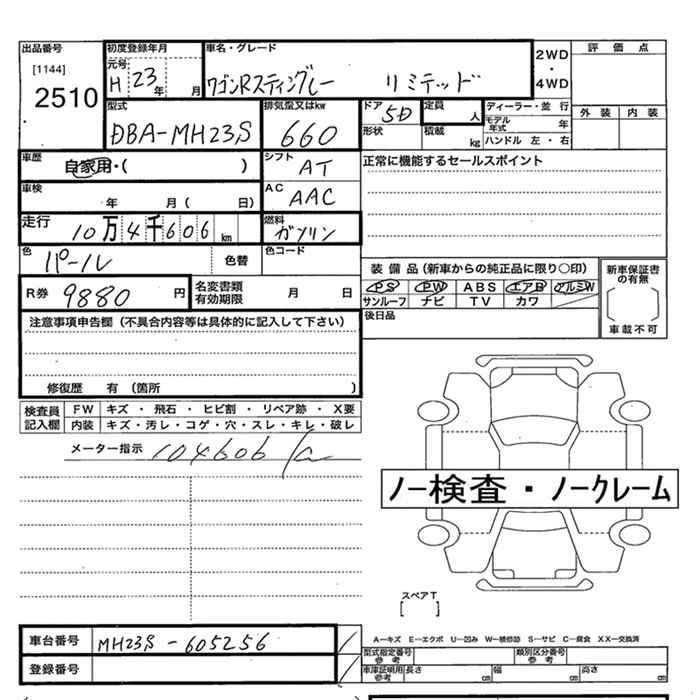 出品番号 初度登録年月 車名・グレード 2WD・4WD 評価点
[1144] 元号
2510 H 23年 月 ワゴンRスティングレー リミテッド
型式 排気量又はkw ドア 5D 定員 人 ディーラー・並行 外装 内装
DBA-MH23S 660 形状 積載 kg モデル年式 年
ハンドル 左・右
車歴 自家用・( ) シフト AT 正常に機能するセールスポイント
車検 年 月( 日) AC AAC
走行 10万4千606km 燃料 ガソリン
色 パール 色替 色コード
R券 9880円 名変書類有効期限 月 日
装備品(新車からの純正品に限り○印) 新車保証書の有無
PS PW ABS エアB アルミW
サンルーフ ナビ TV カワ
車載不可
後日品
注意事項申告欄(不具合内容等は具体的に記入して下さい)
修復歴 有 (箇所 )
検査員記入欄 FW キズ・飛石・ヒビ割・リペア跡・X要
内装 キズ・汚レ・コゲ・穴・スレ・キレ・破レ
メーター指示 104606
ノー検査・ノークレーム
スペアT
[ ]
A―キズ E―エクボ U―凹み W―補修跡 S―サビ C―腐食 XX―交換済
車台番号 MH23S-605256 型式指定番号 参考 類別区分番号 参考
登録番号 車庫証明用 参考 長さ cm 幅 cm 高さ cm